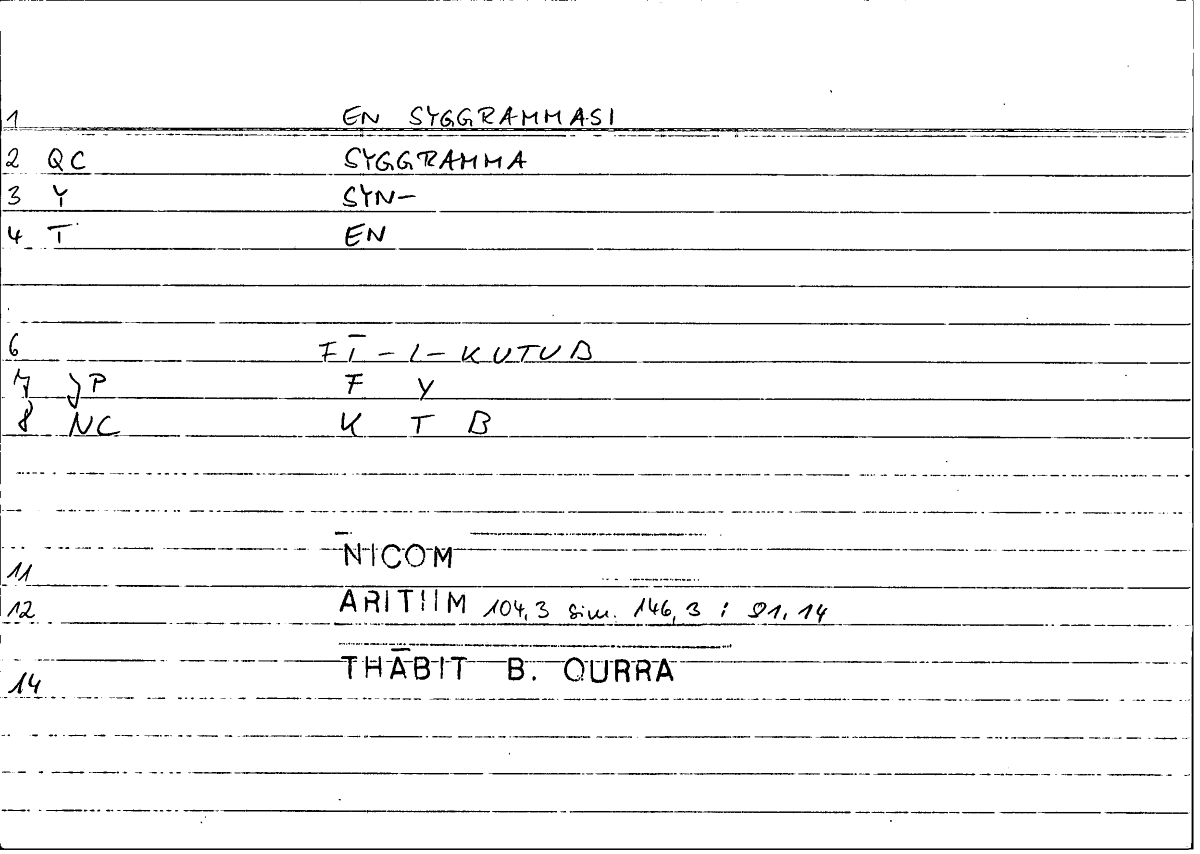 1 EN SYGGRAMMASI
2 QC SYGGRAMMA
3 Y SYN-
4 T EN
6 FĪ-L-KUTUB
7 JP F Y
8 NC K T B
11 NICOM
12 ARITHM 104,3 sim. 146,3 ; 91,14
14 THĀBIT B. QURRA